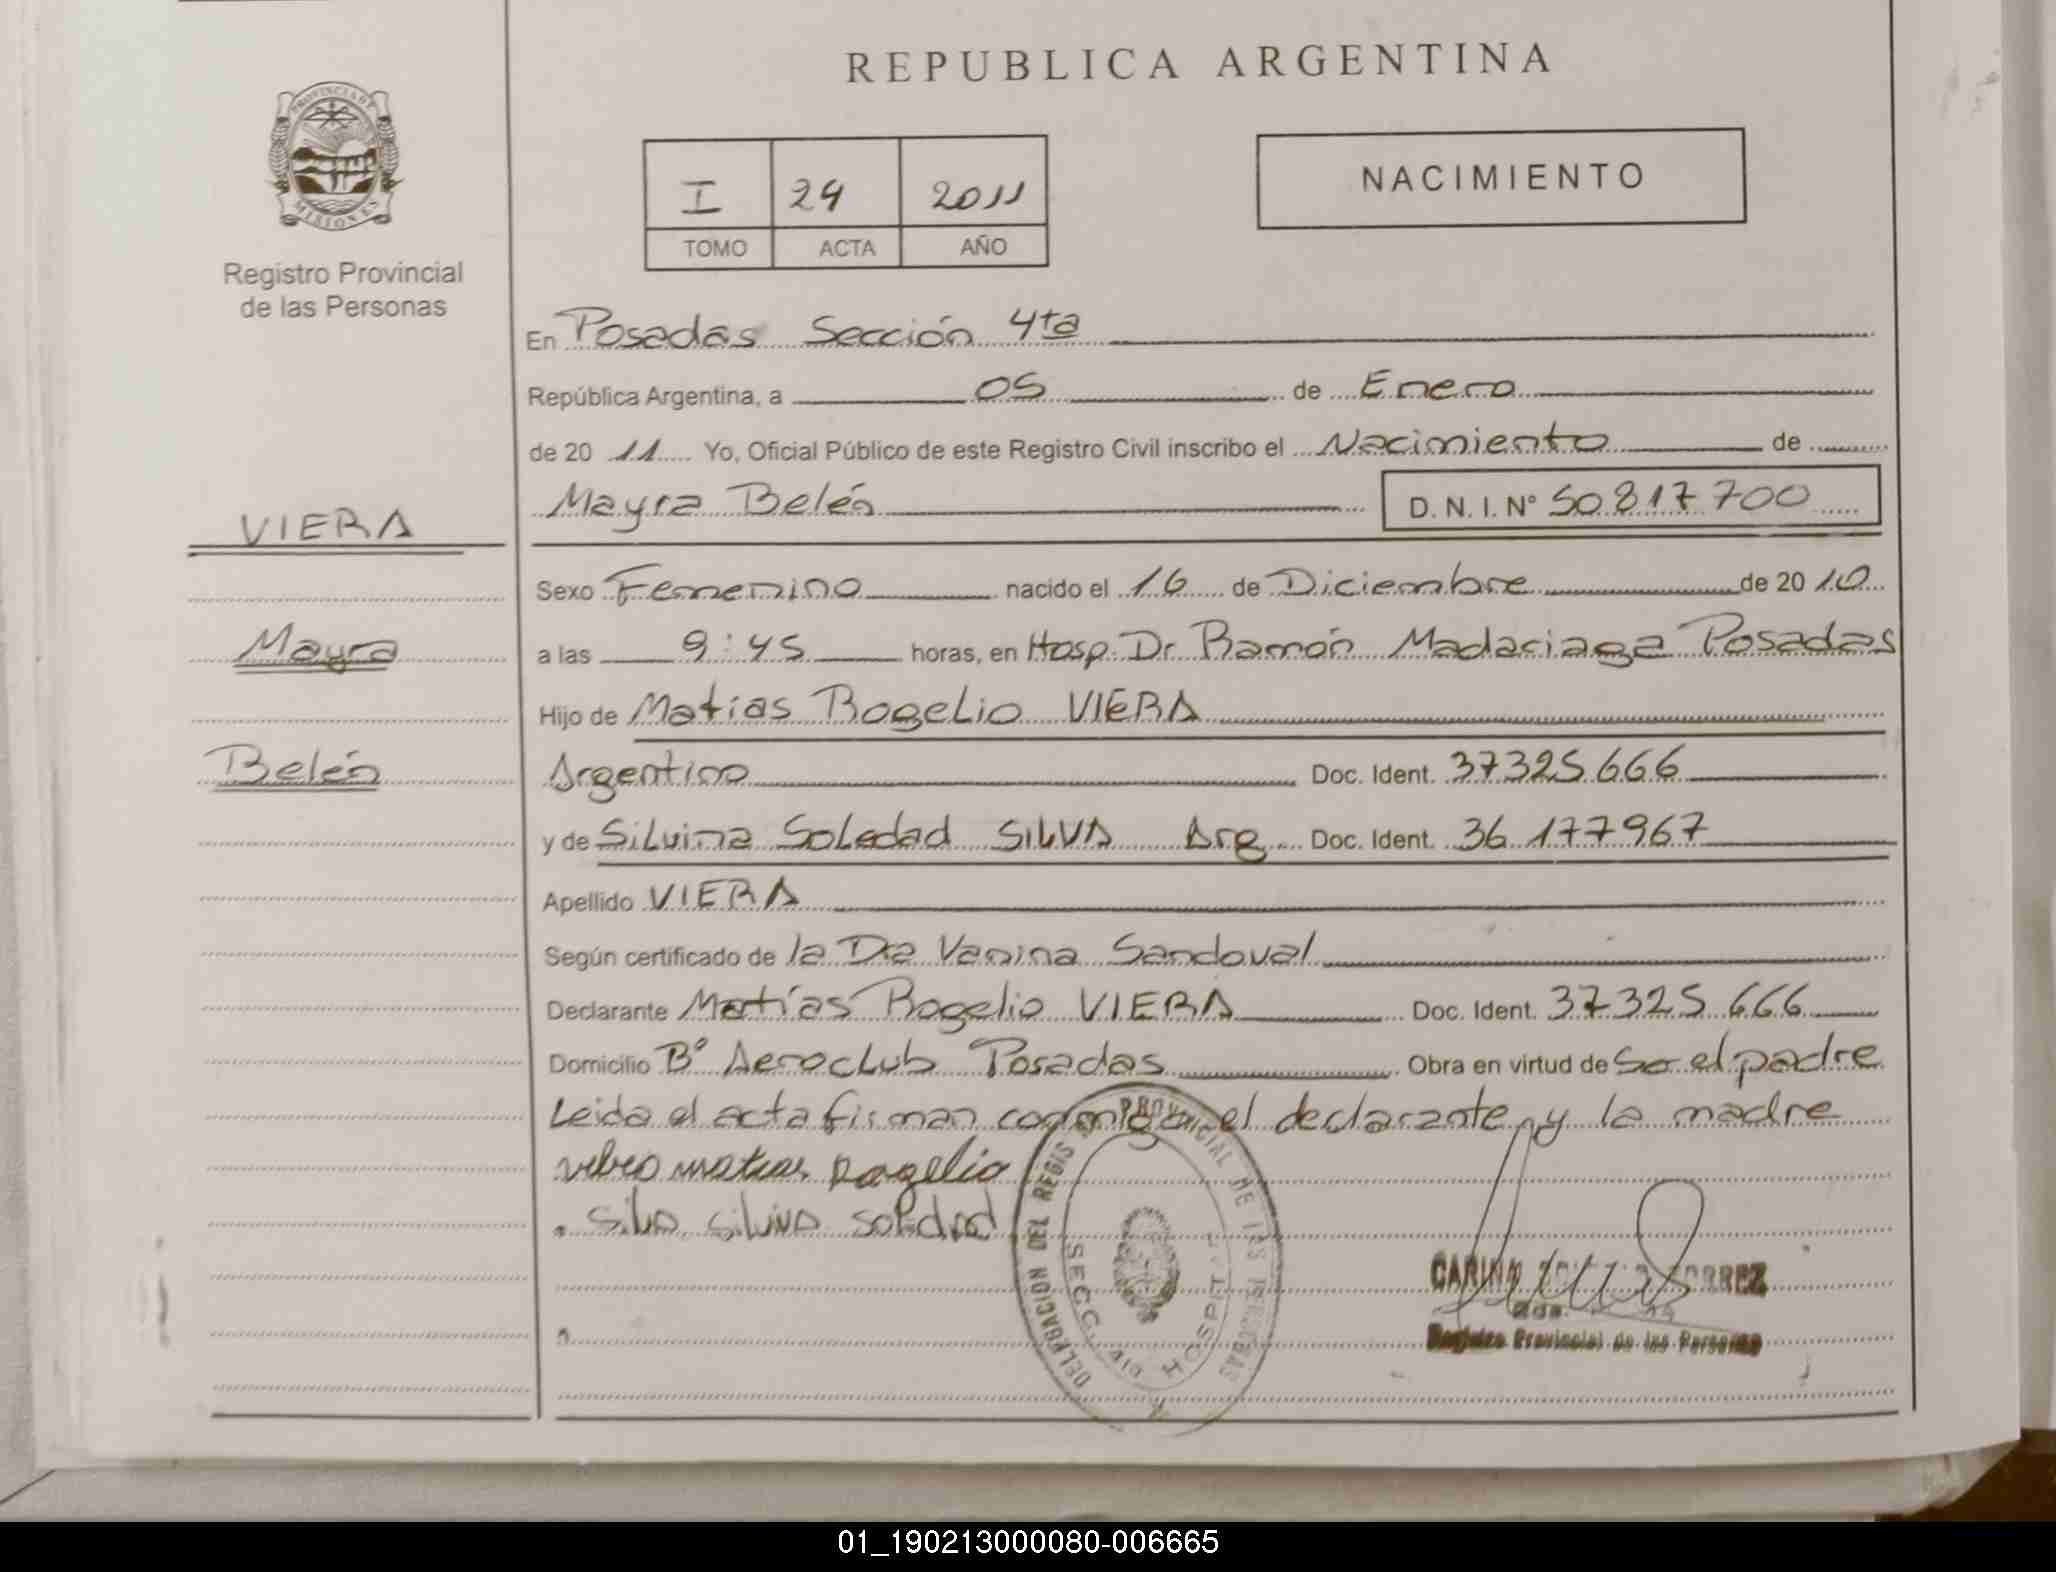 REPUBLICA ARGENTINA
PROVINCIA DE
MISIONES
Registro Provincial
de las Personas
I 29 2011
TOMO ACTA AÑO
NACIMIENTO
En Posadas Sección 4ta
República Argentina, a 05 de Enero
de 20 11 Yo, Oficial Público de este Registro Civil inscribo el Nacimiento de
Mayra Belén D. N. I. Nº 50 817 700
VIERA
Sexo Femenino nacido el 16 de Diciembre de 20 10
Mayra
a las 9:45 horas, en Hosp. Dr Ramón Madariaga Posadas
Hijo de Matías Rogelio VIERA
Belén
Argentino Doc. Ident. 37325.666
y de Silvina Soledad SILVA Arg Doc. Ident. 36 177967
Apellido VIERA
Según certificado de la Dra Vanina Sandoval
Declarante Matías Rogelio VIERA Doc. Ident. 37325.666
Domicilio Bº Aeroclub Posadas Obra en virtud de Ser el padre
Leida el acta firman conmigo, el declarante y la madre
matias Rogelio
Silva silvina soledad
DELEGACION DEL REGIS PROVINCIAL DE LAS PERSONAS
SECC. 4ta HOSPITAL
Registro Provincial de las Personas
01_190213000080-006665